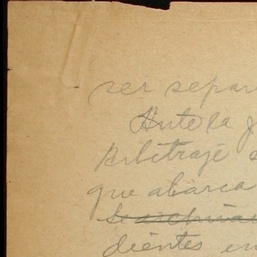 ser separ
Ante la J
Arbitraje
que abarca
dientes en